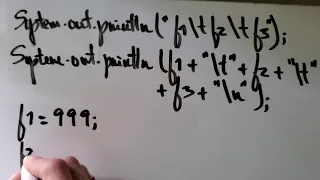 System.out.println("f1\tf2\tf3);
System.out.println(f1+"\t"+f2+"\t"
+f3+"\n");
f1=999;
f2